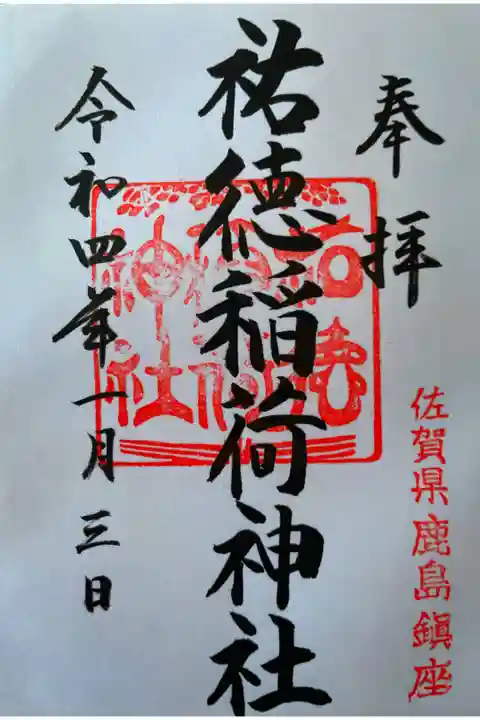 奉拝
佐賀県鹿島鎮座
祐徳稲荷神社
祐徳稲荷神社
令和四年一月三日